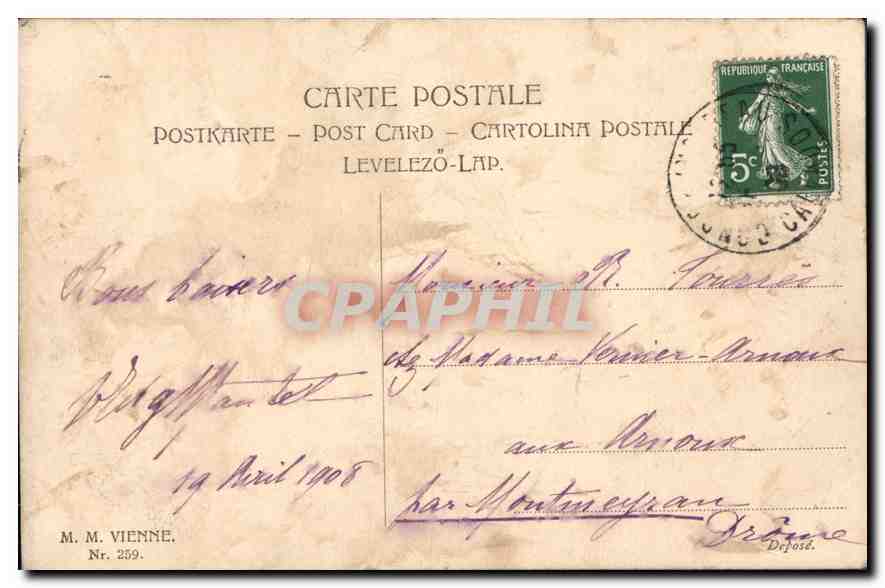 CARTE POSTALE
POSTKARTE – POST CARD – CARTOLINA POSTALE
LEVELEZŐ-LAP.
REPUBLIQUE FRANÇAISE
5c
POSTES
Bons baisers
19 Avril 1908
Monsieur R. Tourrès
chez Madame Vernier-Arnoux
aux Arnoux
par Montmeyran
Drôme
CPAPHIL
M. M. VIENNE.
Nr. 259.
Déposé.